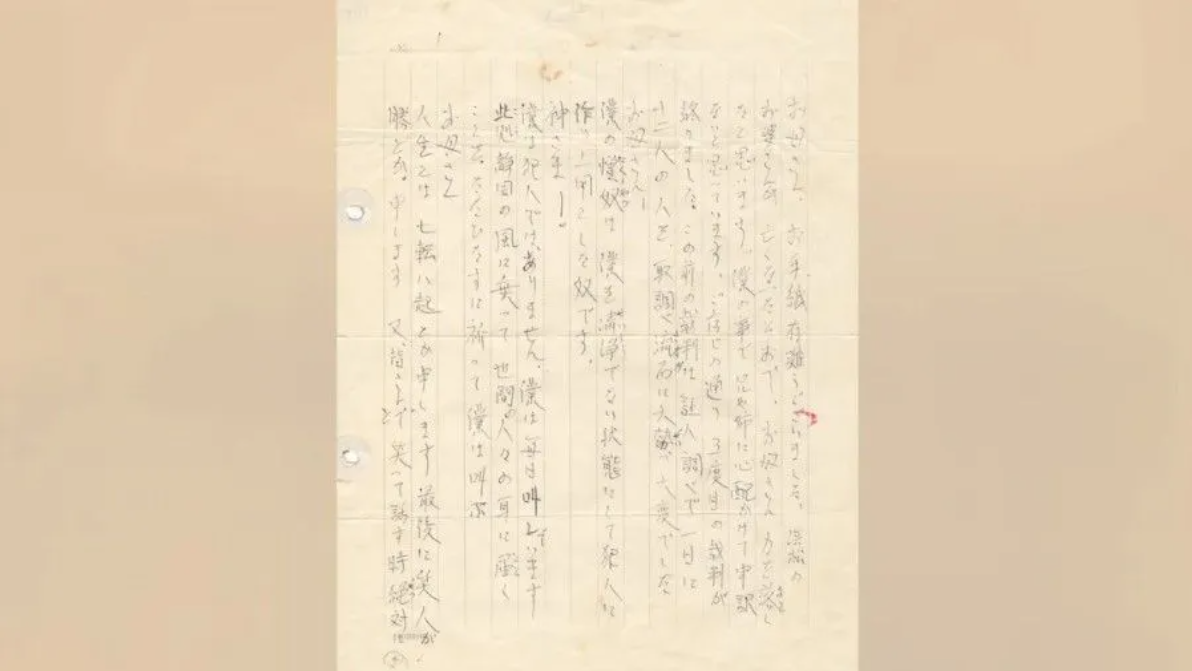 お母さん、お手紙有難うございました。浜松の
お婆さんが亡くなったそおで、お母さん力を落し
など思います。僕の事で兄や姉に心配かけて申訳
なく思っています。ご存じの通り3度目の裁判が
終りました。この前の裁判は証人調べで一日に
十二人の人を取調べ流石に大変でした
お母さん!
僕の憎い奴は僕を清浄でない状態にして犯人に
作り上げ様とした奴です。
神さま!。
僕は犯人ではありません。僕は毎日叫んでいます
此処静岡の風に乗って世間の人々の耳に届く
ことを、ただひたすらに祈って僕は叫ぶ
お母さん
人生とは七転八起とか申します 最後に笑人が
勝とか申します 又、皆さまと笑って話す時絶対